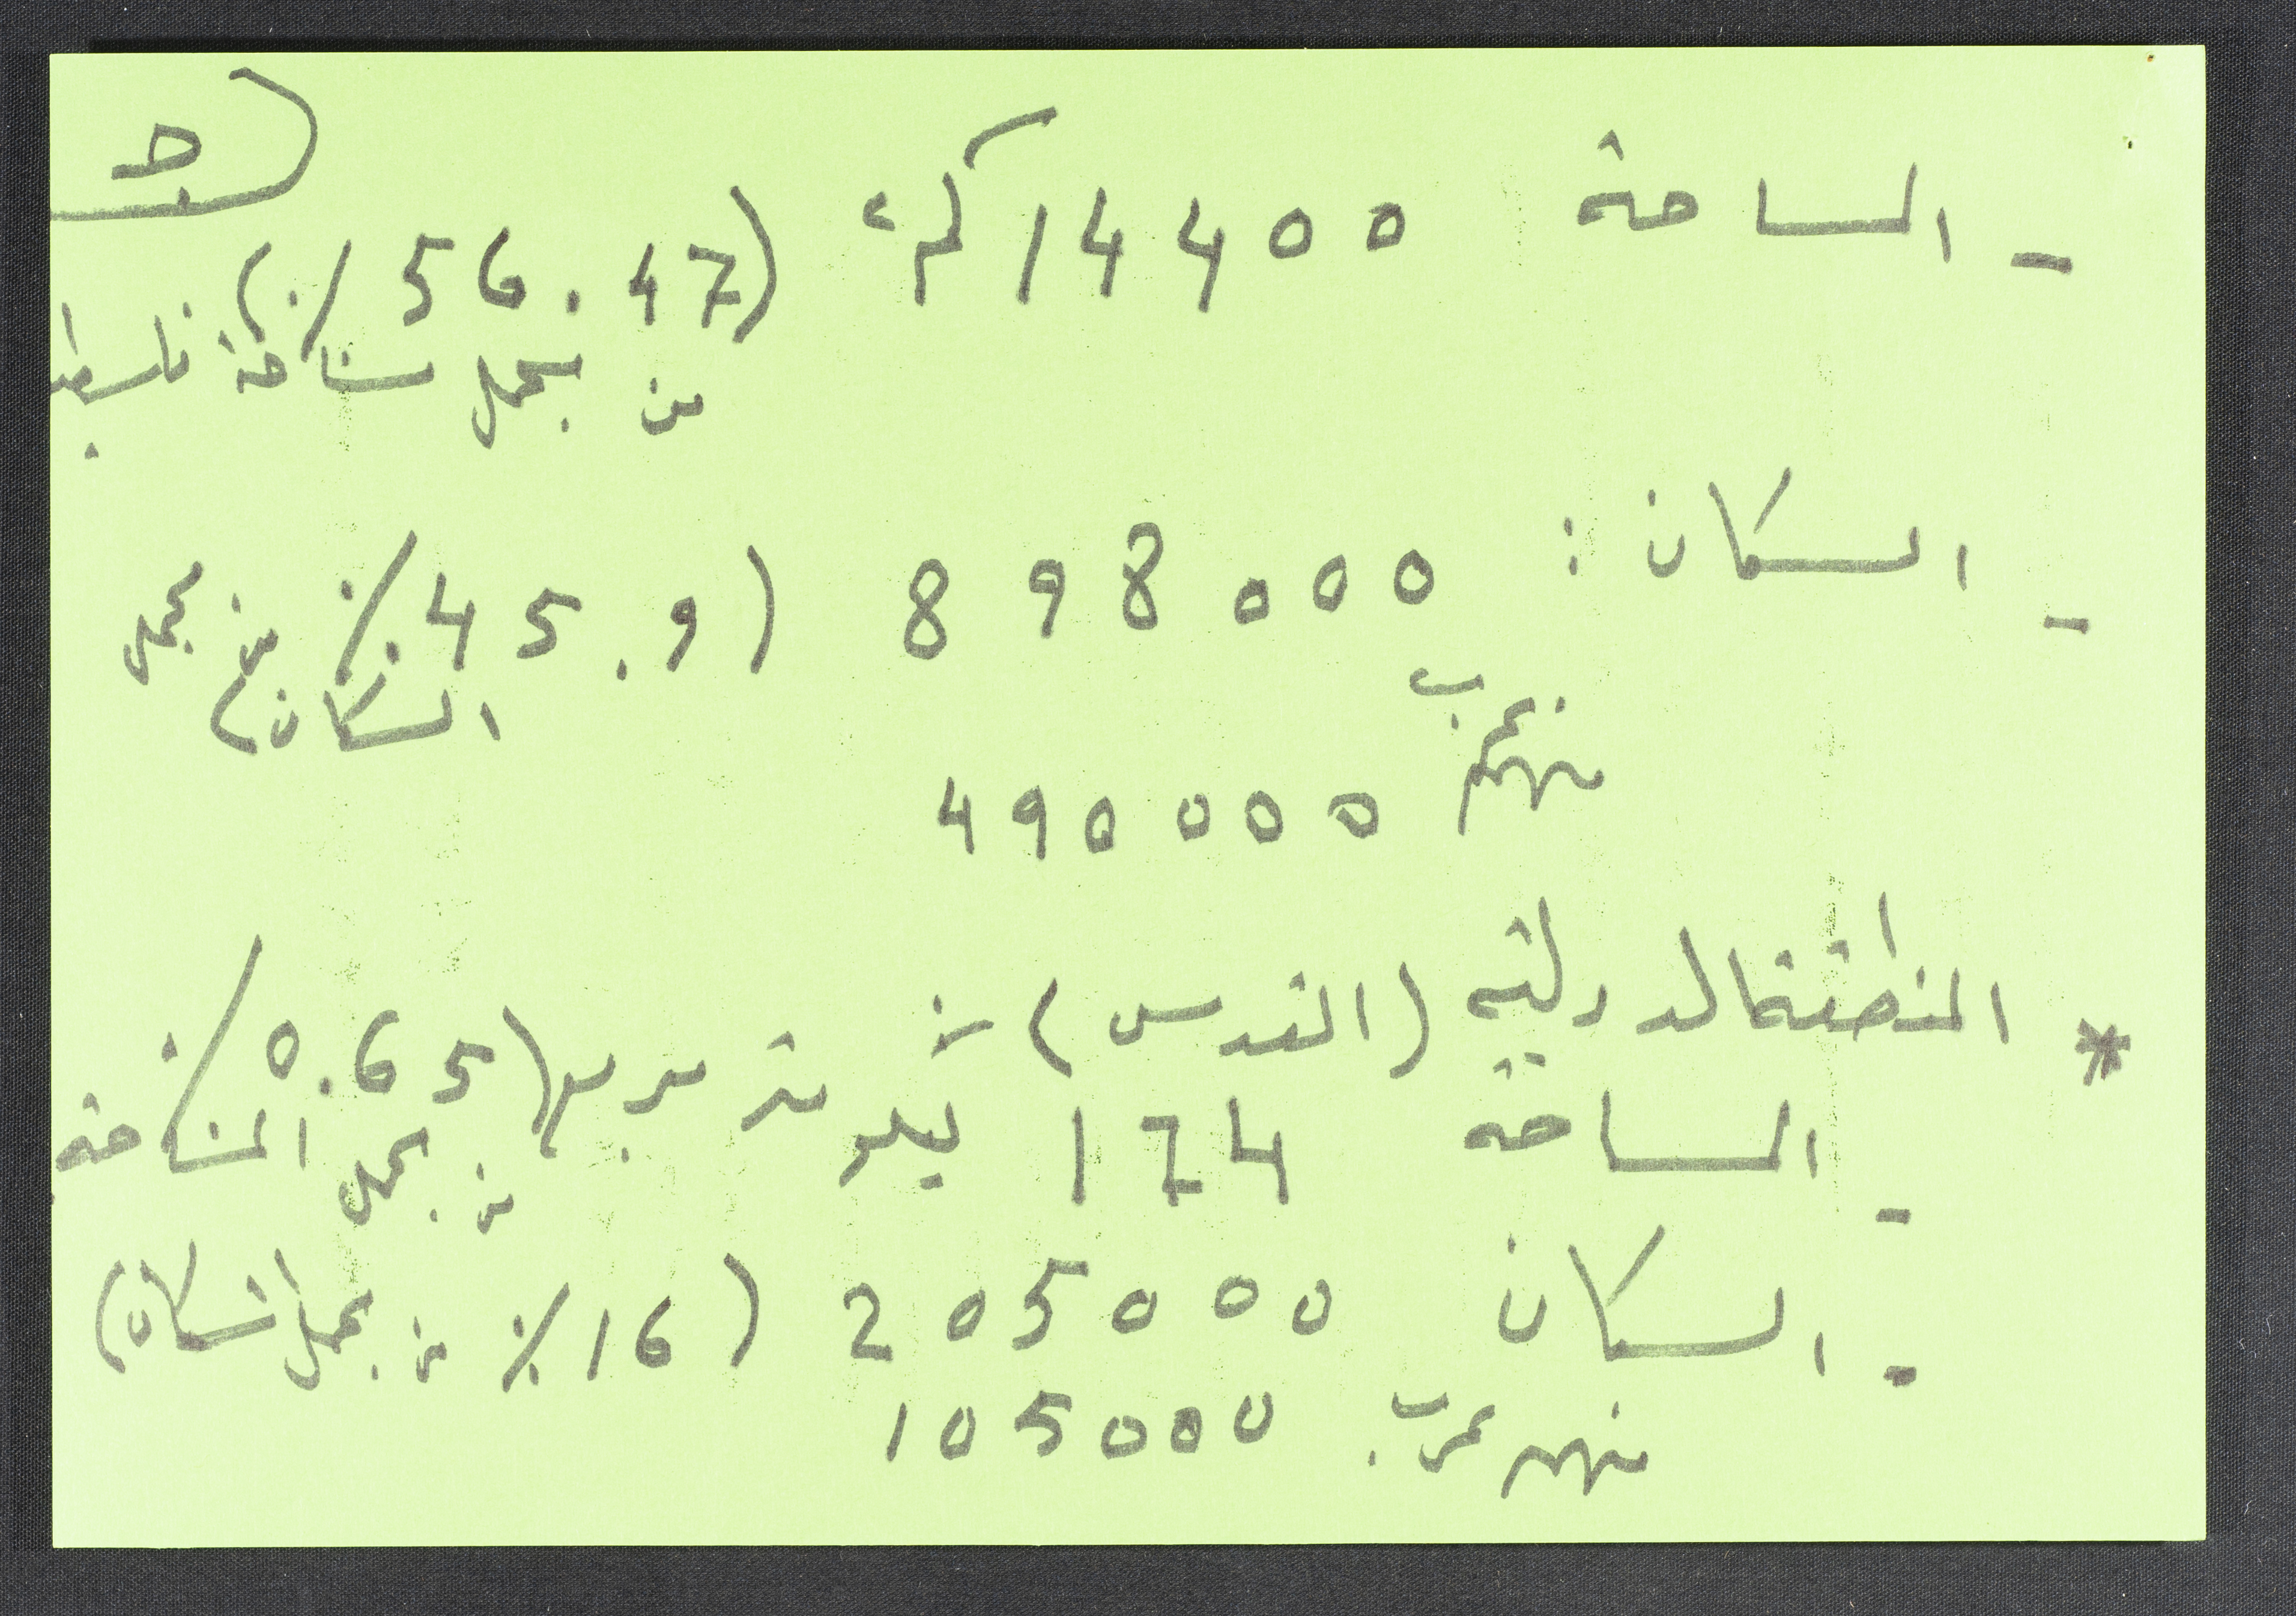 - المساحة 14400 كم٢ (56.47 ٪)
من مجمل مساحة فلسطين
- السكان : 898000 (45.9 ٪ من مجمل
السكان)
منهم عرب 490000
* المنطقة الدولية (القدس)
- المساحة 174 كيلو متر مربع (0.65 ٪
من مجمل المساحة
- السكان 205000 (16 ٪ من مجمل السكان)
منهم عرب 105000